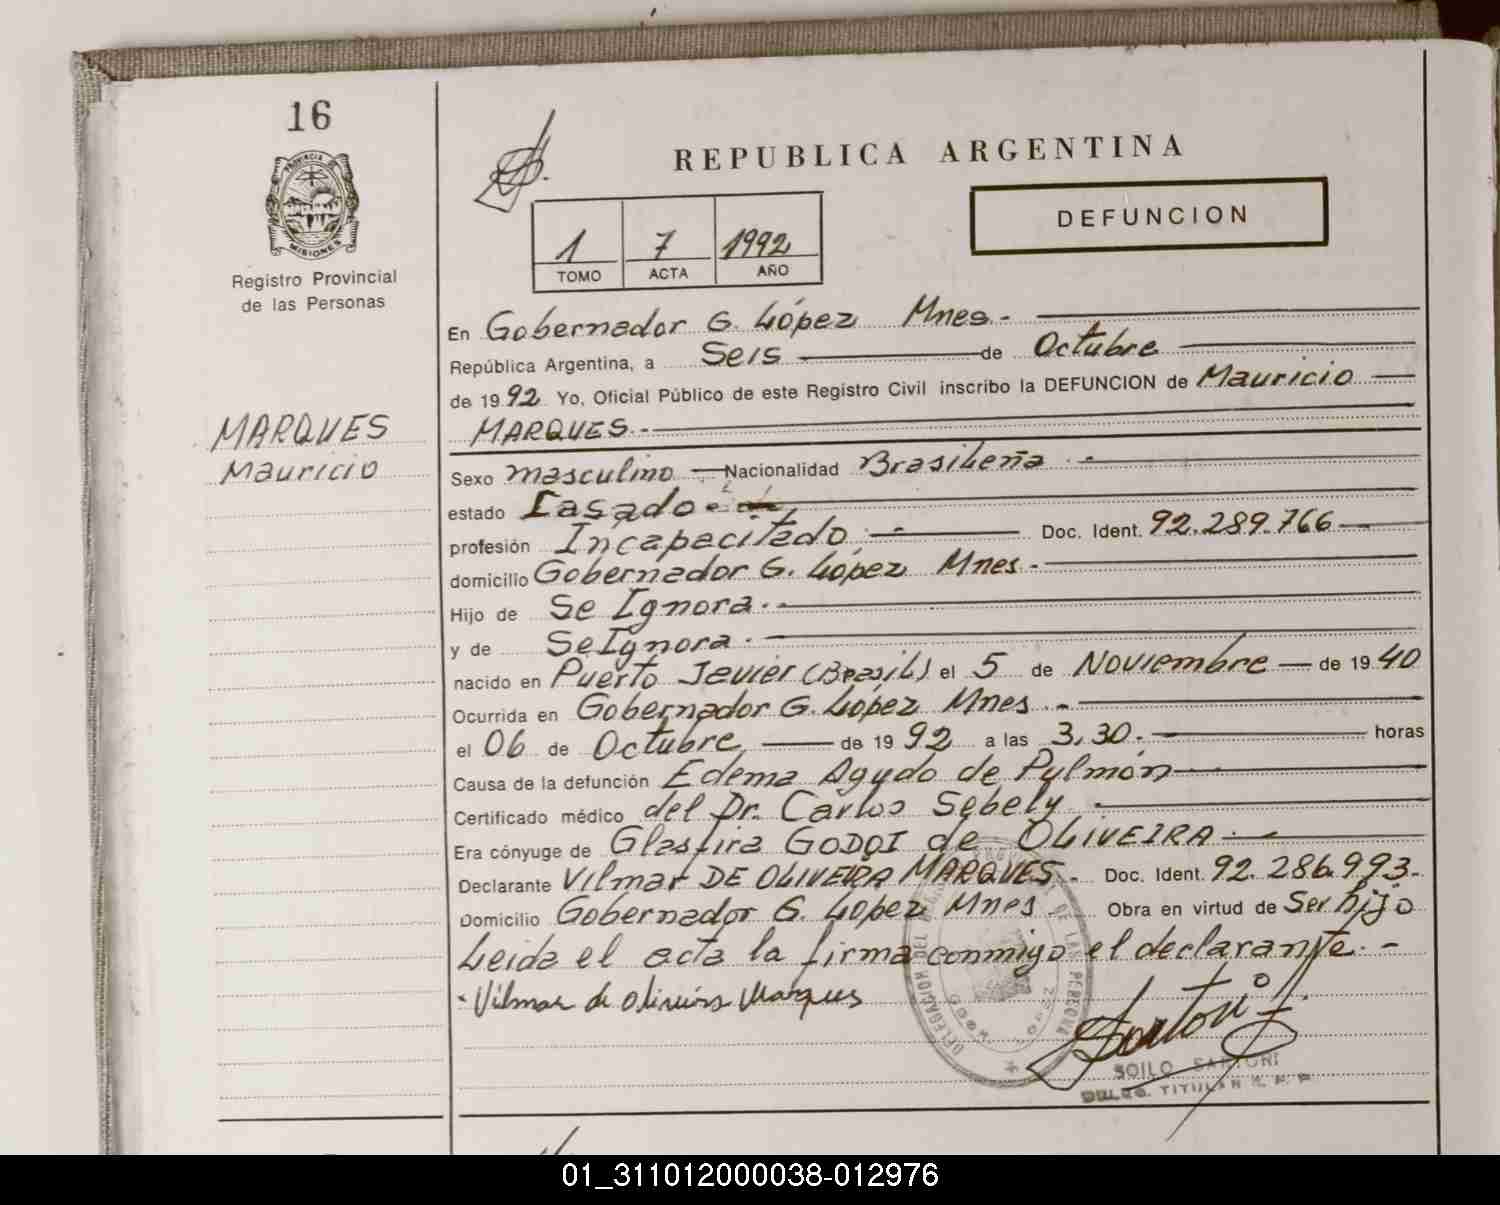 16
PROVINCIA DE
MISIONES
Registro Provincial
de las Personas
MARQUES
Mauricio
REPUBLICA ARGENTINA
DEFUNCION
1 7 1992
TOMO ACTA AÑO
En Gobernador G. López Mnes.-
República Argentina, a Seis de Octubre
de 1992 Yo, Oficial Público de este Registro Civil inscribo la DEFUNCION de Mauricio
MARQUES.-
Sexo masculino Nacionalidad Brasileña.-
estado Casado.-
profesión Incapacitado.- Doc. Ident. 92.289.766
domicilio Gobernador G. López Mnes.-
Hijo de Se Ignora.-
y de Se Ignora.-
nacido en Puerto Javier (Brasil) el 5 de Noviembre de 1940
Ocurrida en Gobernador G. López Mnes.-
el 06 de Octubre de 1992 a las 3,30.- horas
Causa de la defunción Edema Agudo de Pulmón
Certificado médico del Dr. Carlos Sebely.
Era cónyuge de GODOI de OLIVEIRA.-
Declarante Vilmar DE OLIVEIRA MARQUES.- Doc. Ident. 92.286.993.-
Domicilio Gobernador G. López Mnes. Obra en virtud de Ser hijo
Leida el acta la firma conmigo el declarante.-
Vilmar de Oliveira Marques
SOILO SARTORI
TITULAR
01_311012000038-012976